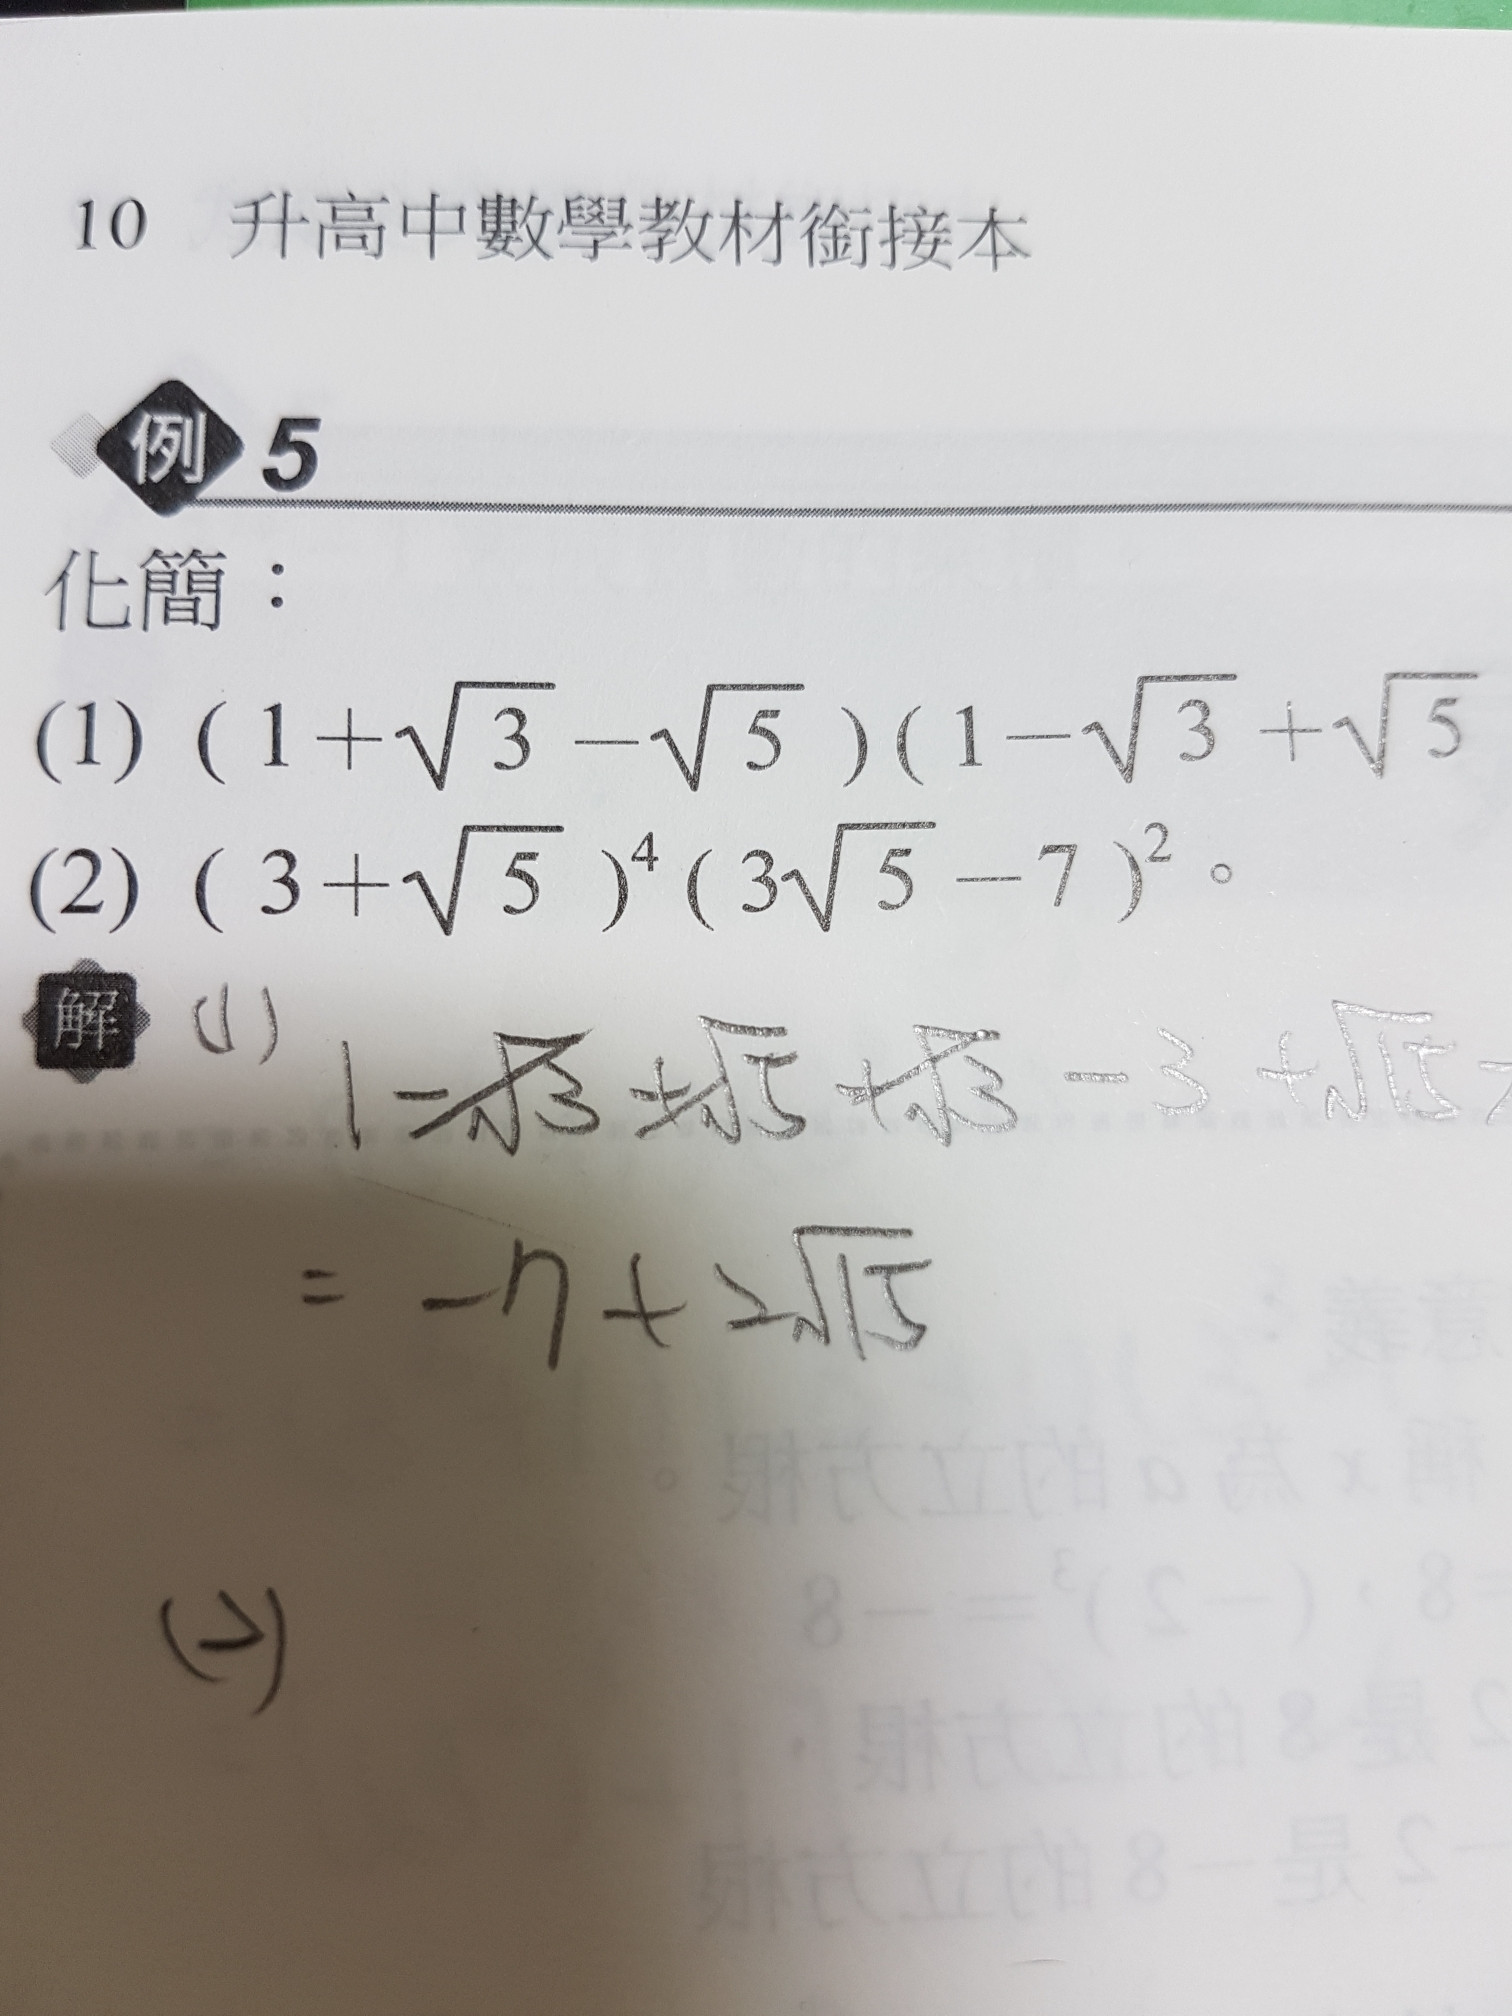 10 升高中數學教材銜接本
例 5
化簡：
(1) ( 1+√3 −√5 )( 1−√3 +√5
(2) ( 3+√5 )⁴ ( 3√5 −7 )² 。
解 (1)
1−√3 +√5 +√3 −3 +√15 -
= −7 + 2√15
(2)